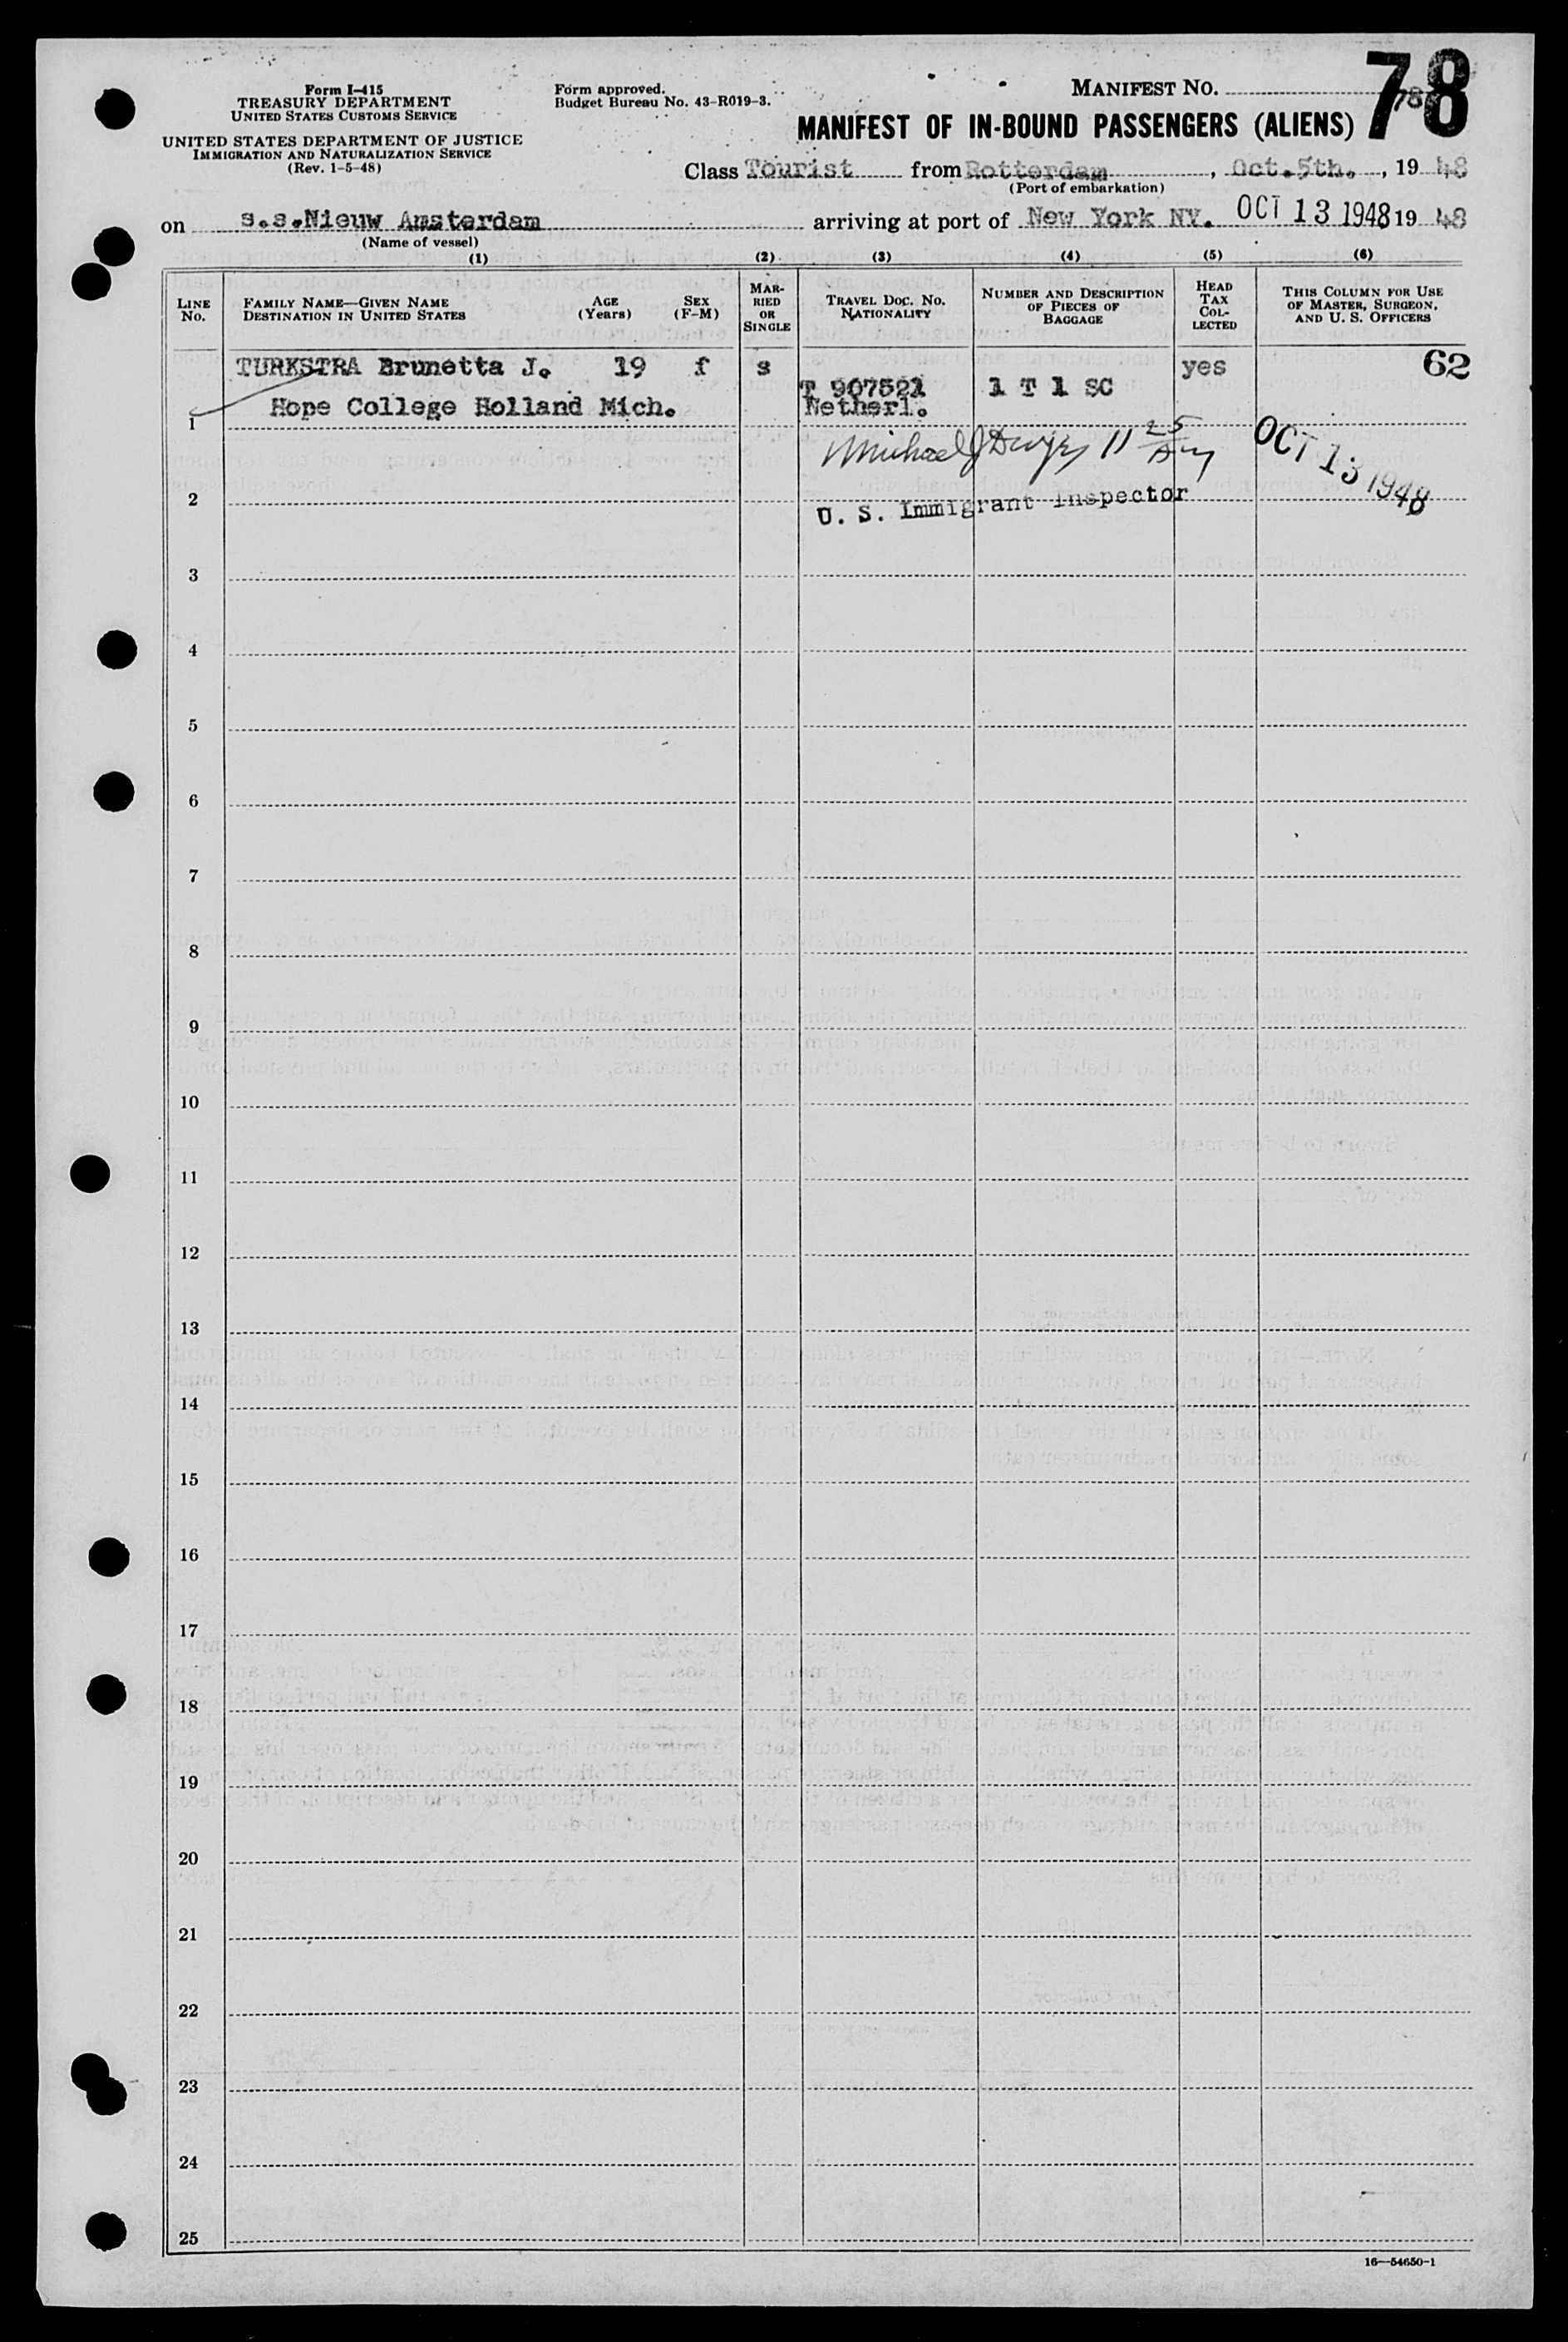 Form I-415
TREASURY DEPARTMENT
UNITED STATES CUSTOMS SERVICE
UNITED STATES DEPARTMENT OF JUSTICE
IMMIGRATION AND NATURALIZATION SERVICE
(Rev. 1-5-48)
Form approved.
Budget Bureau No. 43-R019-3.
MANIFEST NO. 78
78
MANIFEST OF IN-BOUND PASSENGERS (ALIENS)
Class Tourist from Rotterdam, Oct.5th., 19 48
(Port of embarkation)
on s.s.Nieuw Amsterdam arriving at port of New York NY. OCT 13 1948 19 48
(Name of vessel)
(1) (2) (3) (4) (5) (6)
LINE NO.
FAMILY NAME—GIVEN NAME
DESTINATION IN UNITED STATES
AGE (Years)
SEX (F-M)
MARRIED OR SINGLE
TRAVEL DOC. NO.
NATIONALITY
NUMBER AND DESCRIPTION OF PIECES OF BAGGAGE
HEAD TAX COLLECTED
THIS COLUMN FOR USE OF MASTER, SURGEON, AND U. S. OFFICERS
TURKSTRA Brunetta J. 19 f s yes 62
T 907521 1 T 1 SC
Hope College Holland Mich. Netherl.
1
Michael J Dwyer 11 25 Am OCT 13 1948
2
U. S. Immigrant Inspector
3
4
5
6
7
8
9
10
11
12
13
14
15
16
17
18
19
20
21
22
23
24
25
16—54650-1